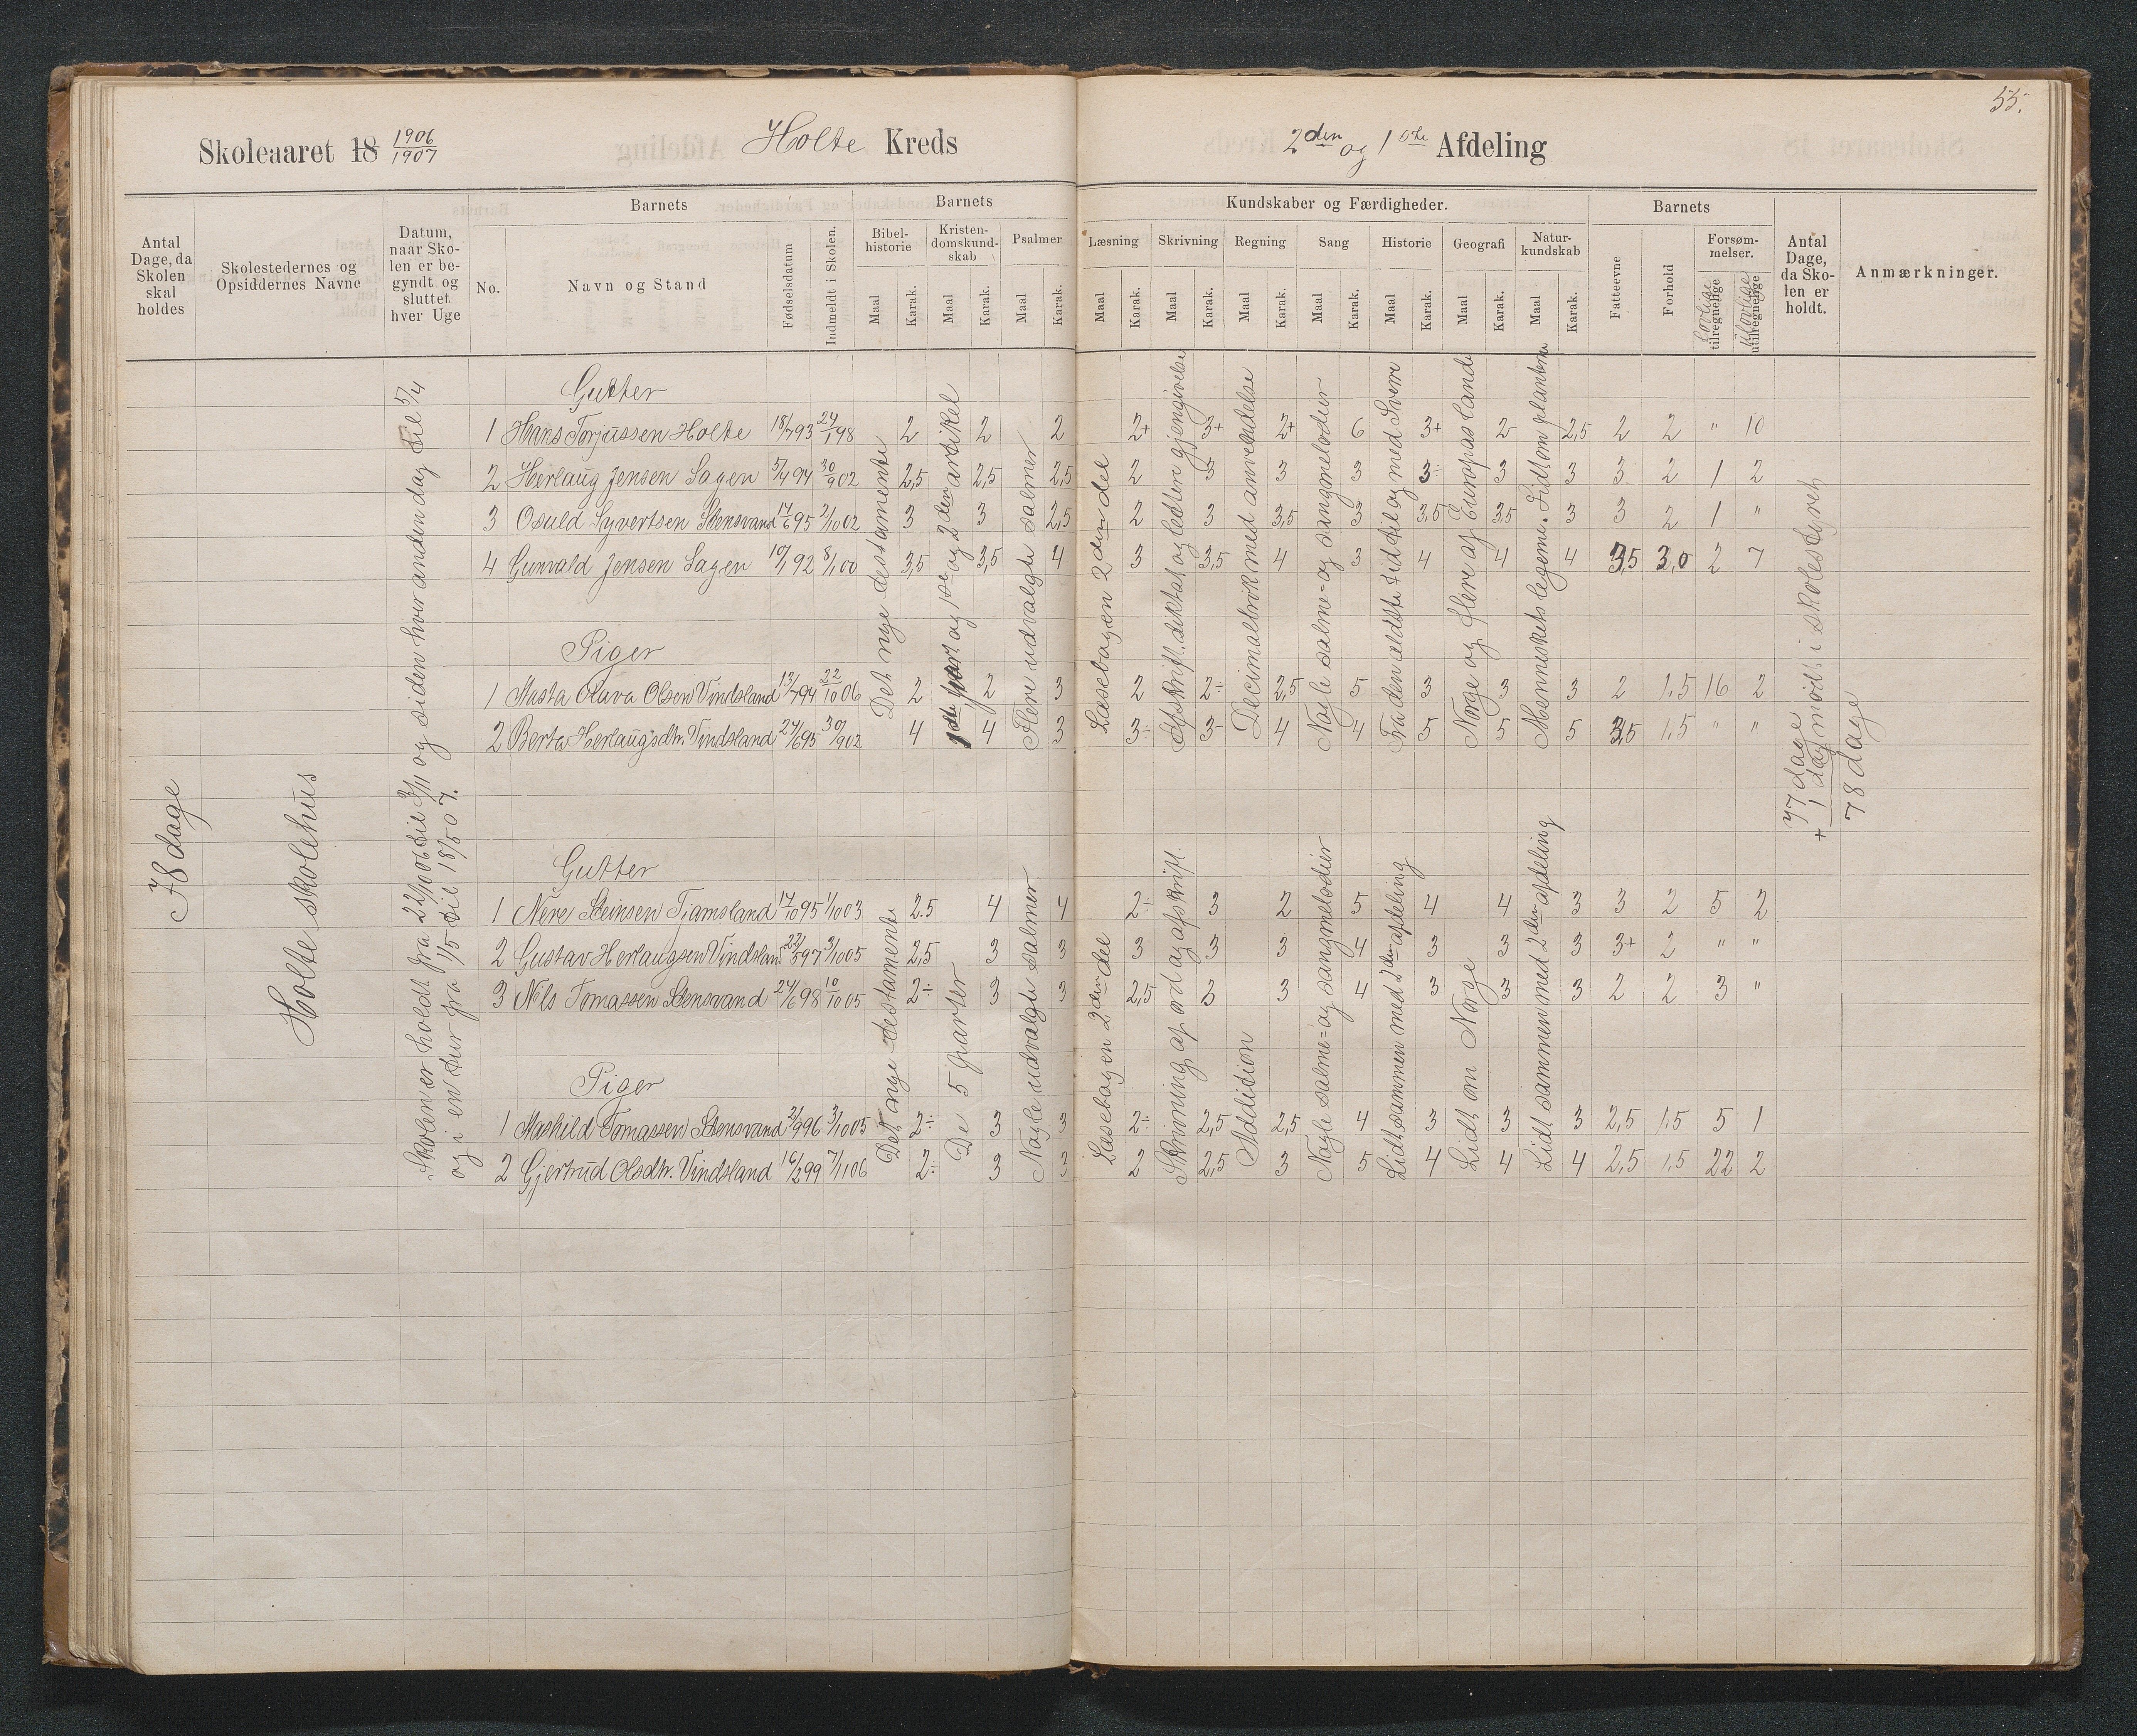 55.
Skoleaaret 18 1906/1907 Holte Kreds 2den og 1ste Afdeling
Antal Dage, da Skolen skal holdes
Skolestedernes og Opsiddernes Navne
Datum, naar Skolen er begyndt og sluttet hver Uge
Barnets
No.
Navn og Stand
Fødselsdatum
Indmeldt i Skolen.
Barnets Kundskaber og Færdigheder.
Bibelhistorie Maal Karak.
Kristendomskundskab Maal Karak.
Psalmer Maal Karak.
Læsning Maal Karak.
Skrivning Maal Karak.
Regning Maal Karak.
Sang Maal Karak.
Historie Maal Karak.
Geografi Maal Karak.
Naturkundskab Maal Karak.
Barnets
Fatteevne
Forhold
Forsømmelser.
tilregnelige
utilregnelige
Antal Dage, da Skolen er holdt.
Anmærkninger.
78 dage
Holte skolehus
Skolen er holdt fra 22/10 06 til 3/11 og siden hver anden dag til 5/4
og i en tur fra 1/5 til 18/5 07.
Gutter
1 Hans Torjussen Holte 18/7 93 24/1 98 2 2 2 2+ 3+ 2+ 6 3+ 2 2,5 2 2 " 10
2 Herlaug Jensen Sagen 5/4 94 30/9 02 2,5 2,5 2,5 2 3 3 3 3÷ 3 3 3 2 1 2
3 Osuld Syvertsen Stensvand 14/6 95 2/10 02 3 3 2,5 2 3 3,5 3 3,5 3,5 3 3 2 1 "
4 Gunvald Jensen Sagen 10/1 92 8/1 00 3,5 3,5 4 3 3,5 4 3 4 4 4 3,5 3,0 2 7
Piger
1 Masta Olava Olsen Vindsland 13/7 94 22/10 06 2 2 3 2 2÷ 2,5 5 3 3 3 2 1,5 16 2
2 Berta Herlaugsdtr. Vindsland 24/6 95 30/9 02 4 4 3 3÷ 3- 4 4 5 5 5 3,5 1,5 " "
Det nye testamente
1ste part og 1ste og 2den artikel
Flere udvalgte salmer
Læsebogen 2den del
Afskrift, diktat og lettere gjengivelse
Decimalbrøk med anvendelse
Nogle salme- og sangmelodier
Fra den ældste tid til og med Sverre
Norge og flere af Europas lande
Menneskets legeme. Lidt om planterne
77 dage
+ 1 dag mødt i skolestyret
78 dage
Gutter
1 Nere Steinsen Tjamsland 14/10 95 1/10 03 2.5 4 4 2÷ 3 2 5 4 4 3 3 2 5 2
2 Gustav Herlaugsen Vindsland 22/5 97 3/10 05 2,5 3 3 3 3 3 4 3 3 3 3+ 2 " "
3 Nils Tomassen Stensvand 24/6 98 10/10 05 2÷ 3 3 2,5 3 3 4 3 3 3 2 2 3 "
Piger
1 Mathild Tomassen Stensvand 2/9 96 3/10 05 2÷ 3 3 2÷ 2,5 2,5 4 3 3 3 2,5 1,5 5 1
2 Gjertrud Olsdtr. Vindsland 16/2 99 7/11 06 2÷ 3 3 2 2,5 3 5 4 4 4 2,5 1,5 22 2
Det nye testamente
De 5 parter
Nogle udvalgte salmer
Læsebogen 2den del
Skrivning af ord og afskrift.
Addition
Nogle salme- og sangmelodier
Lidt sammen med 2den afdeling
Lidt om Norge
Lidt sammen med 2den afdeling